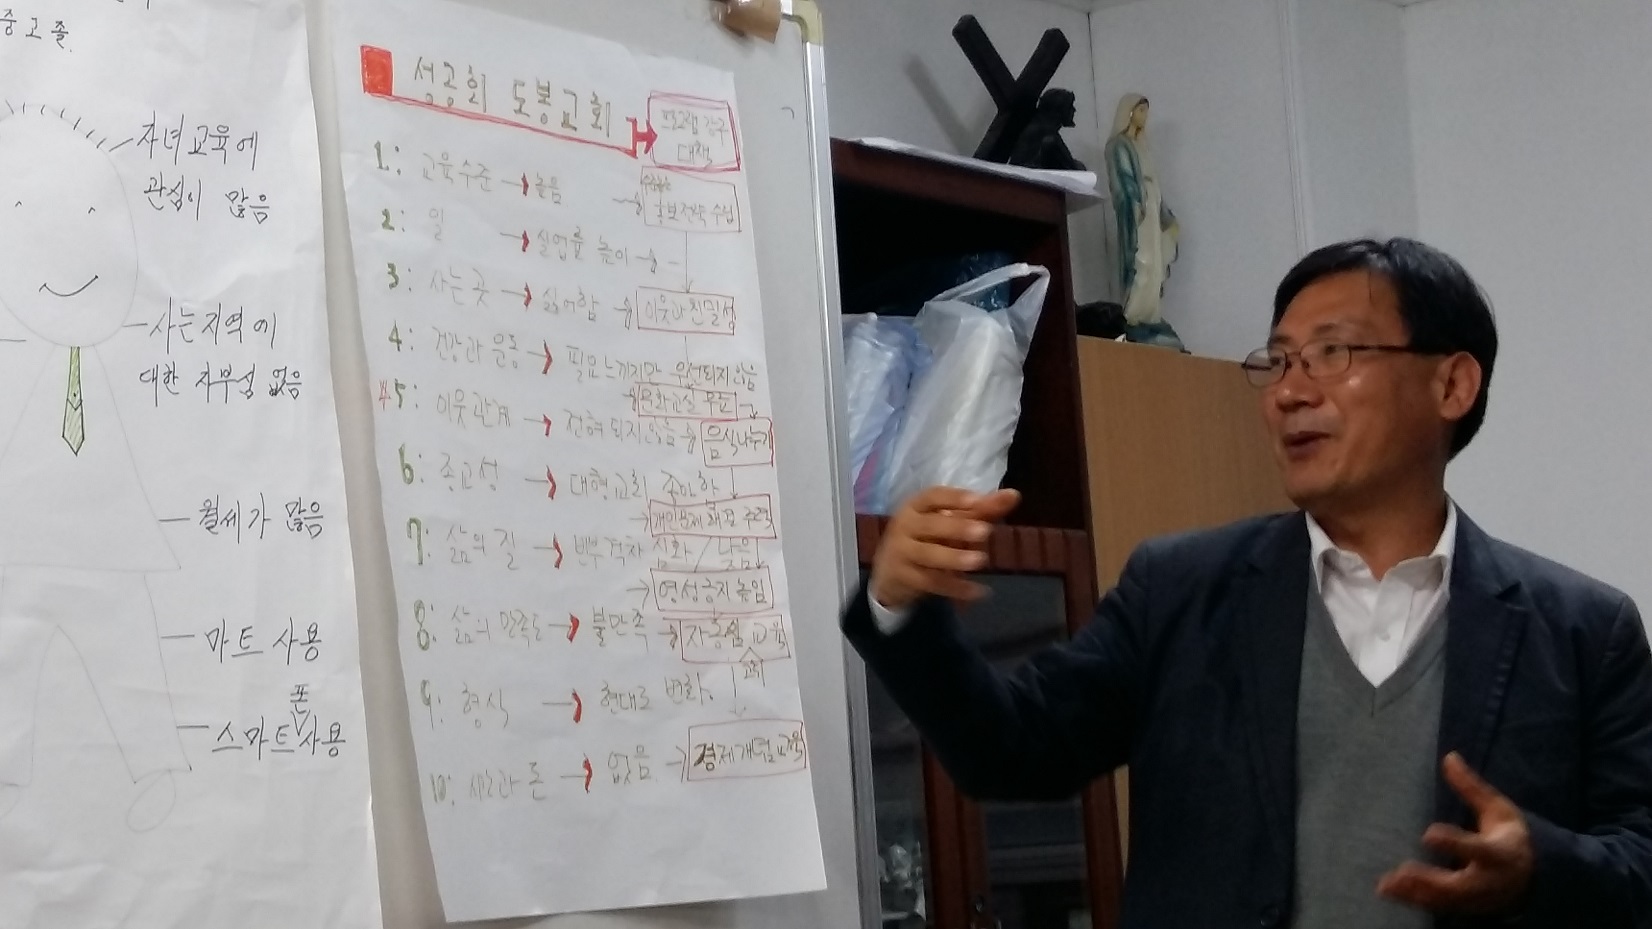 중고졸.
자녀교육에
관심이 많음
사는지역에
대한 자부심 없음
월세가 많음
마트 사용
폰
스마트 사용
성공회 도봉교회
프로그램 강구
대책
1: 교육수준 → 높음
홍보전략 수립
2: 일 → 실업률 높아
3: 사는곳 → 싫어함 이웃과 친밀성
4: 건강과 운동 → 필요느끼지만 우선되지않음
문화교실
5: 이웃관계 → 전혀 되지않음 음식나누기
6: 종교성 → 대형교회 좋아함
7: 삶의 질 → 빈부격차 심화 /
영성긍지높임
8: 삶의 만족도 → 불만족 → 자긍심 교육
9: 형식 → 현대로 변화.
10: 시간과 돈 → 없음 → 경제개념교육